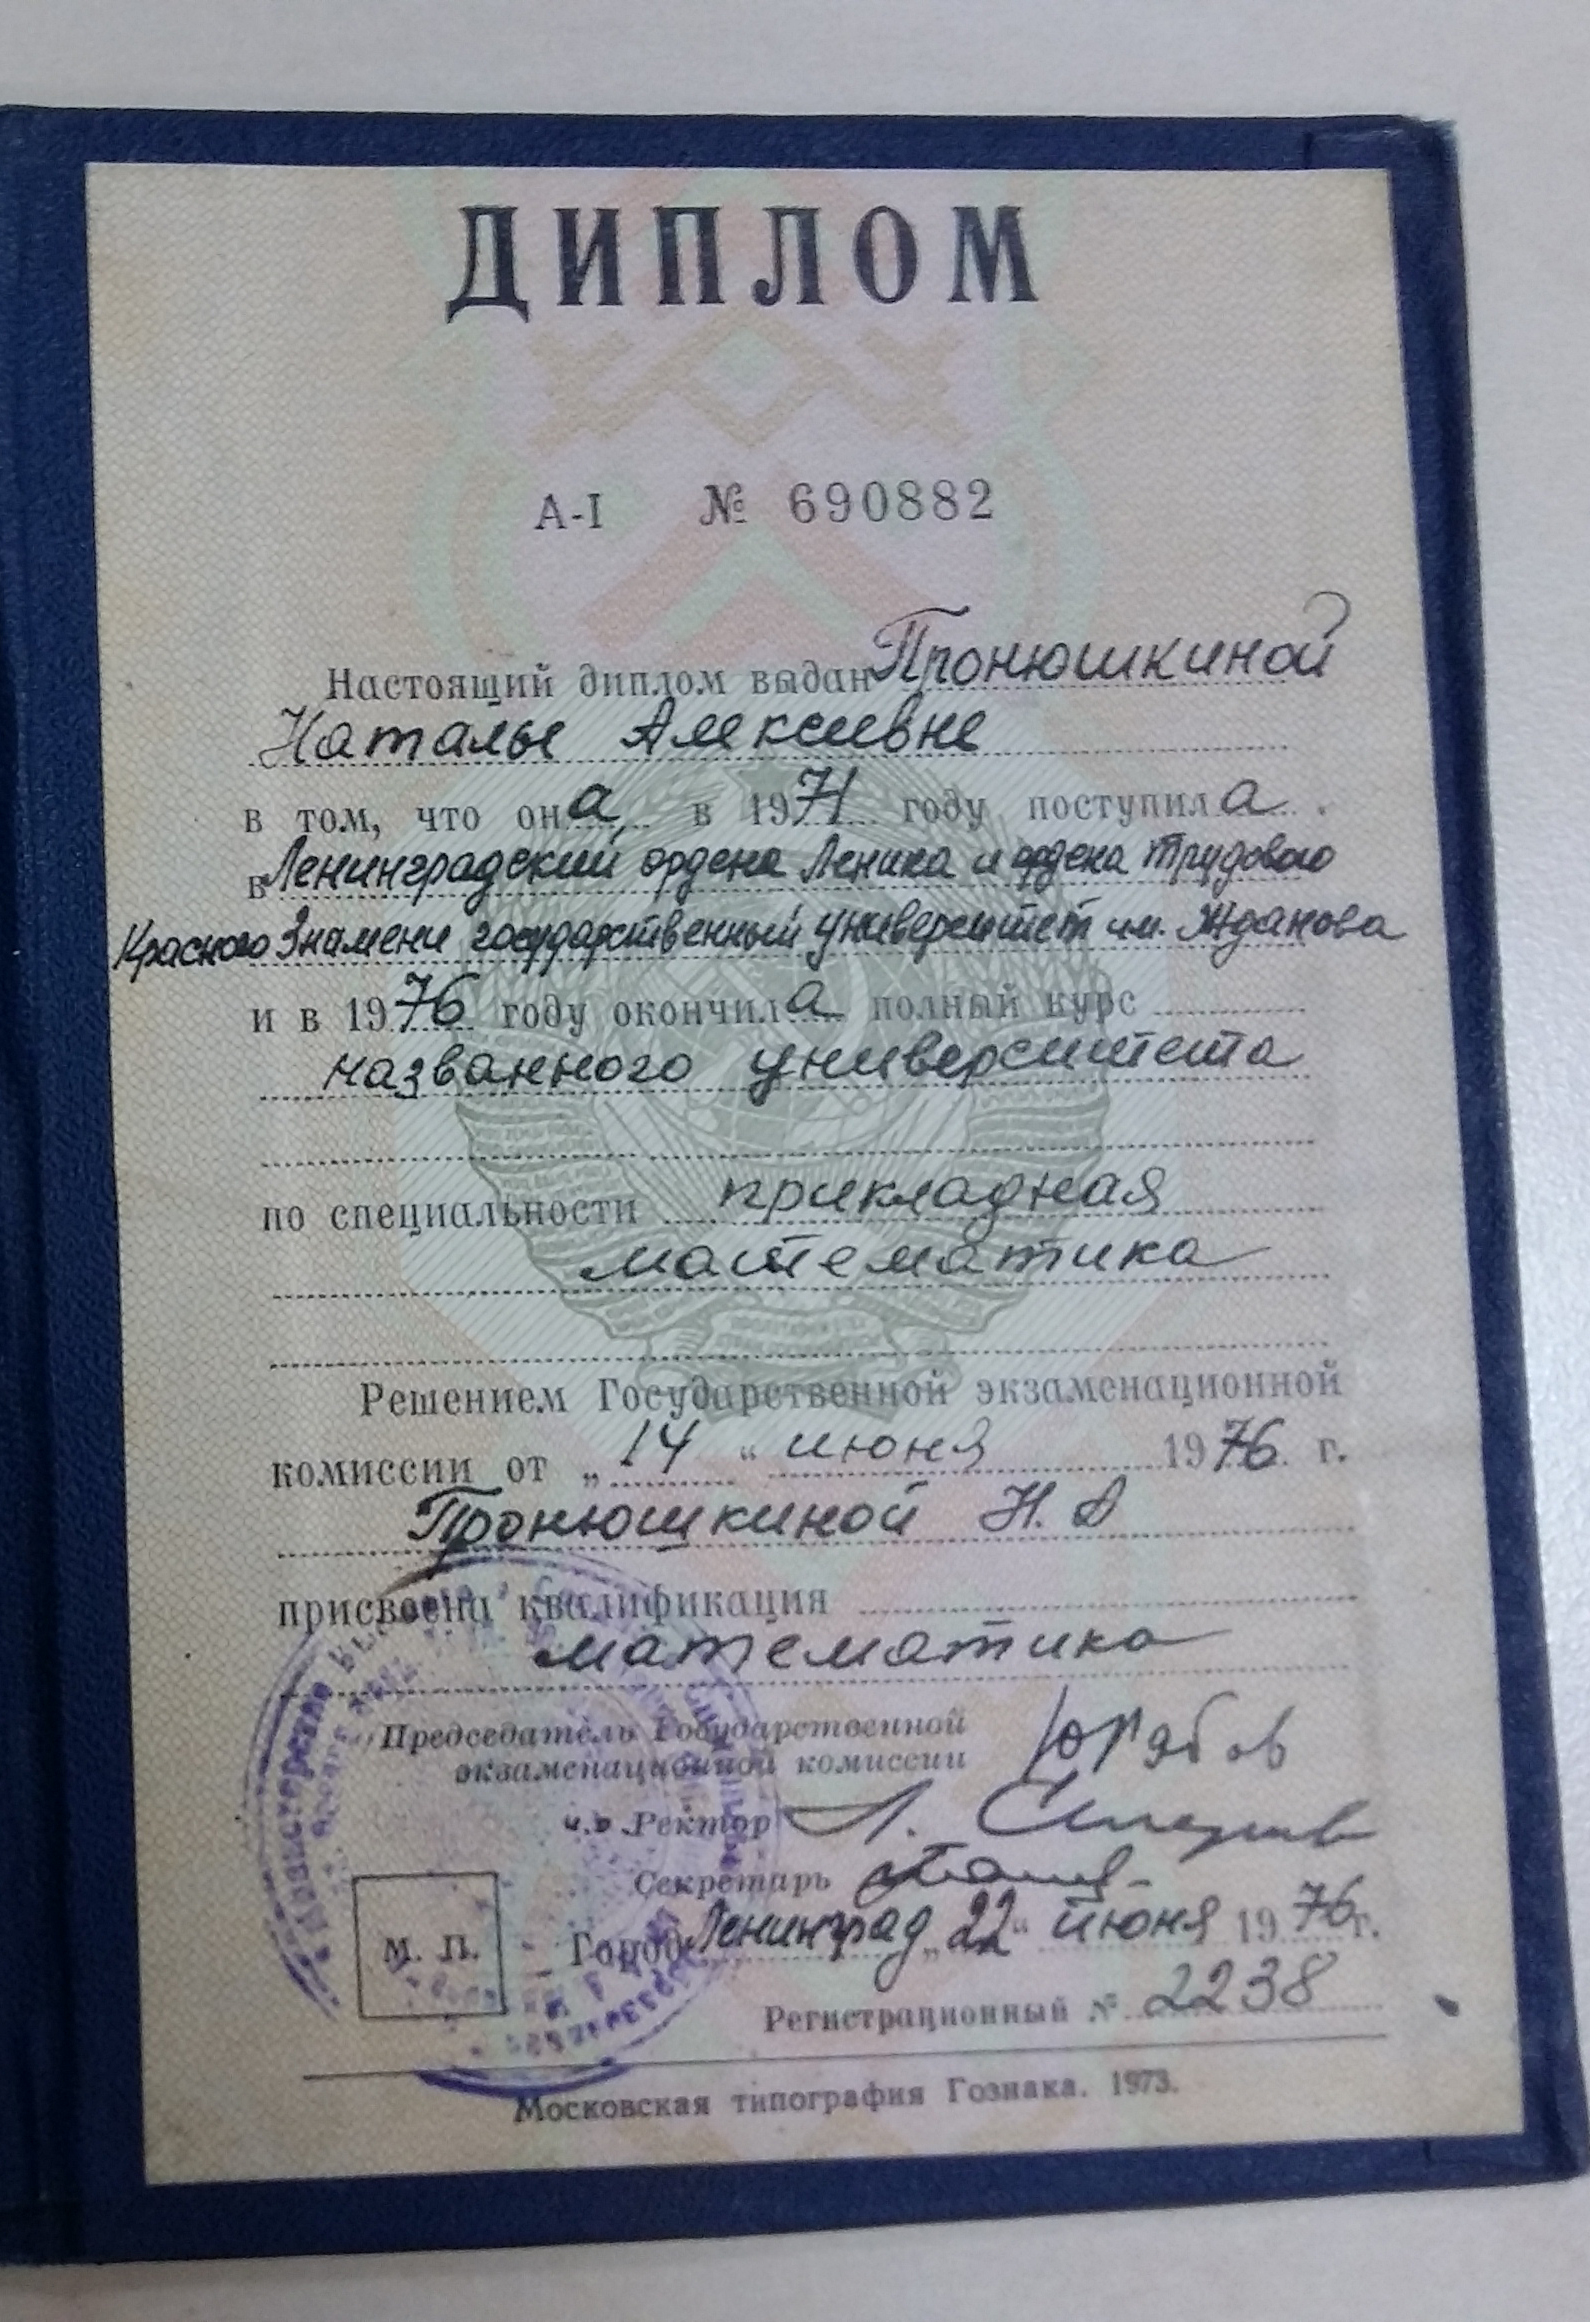 ДИПЛОМ
А-I № 690882
Настоящий диплом выдан Пронюшкиной
Наталье Алексеевне
в том, что она в 1971 году поступила
в Ленинградский ордена Ленина и ордена Трудового
Красного Знамени государственный университет им. Жданова
и в 1976 году окончила полный курс
названного университета
по специальности прикладная
математика
Решением Государственной экзаменационной
комиссии от „14“ июня 1976 г.
Пронюшкиной Н. А
присвоена квалификация
математика
Председатель Государственной
экзаменационной комиссии
и.о. Ректор
Секретарь
М. П. Город Ленинград „22“ июня 1976 г.
Регистрационный № 2238
Московская типография Гознака. 1973.